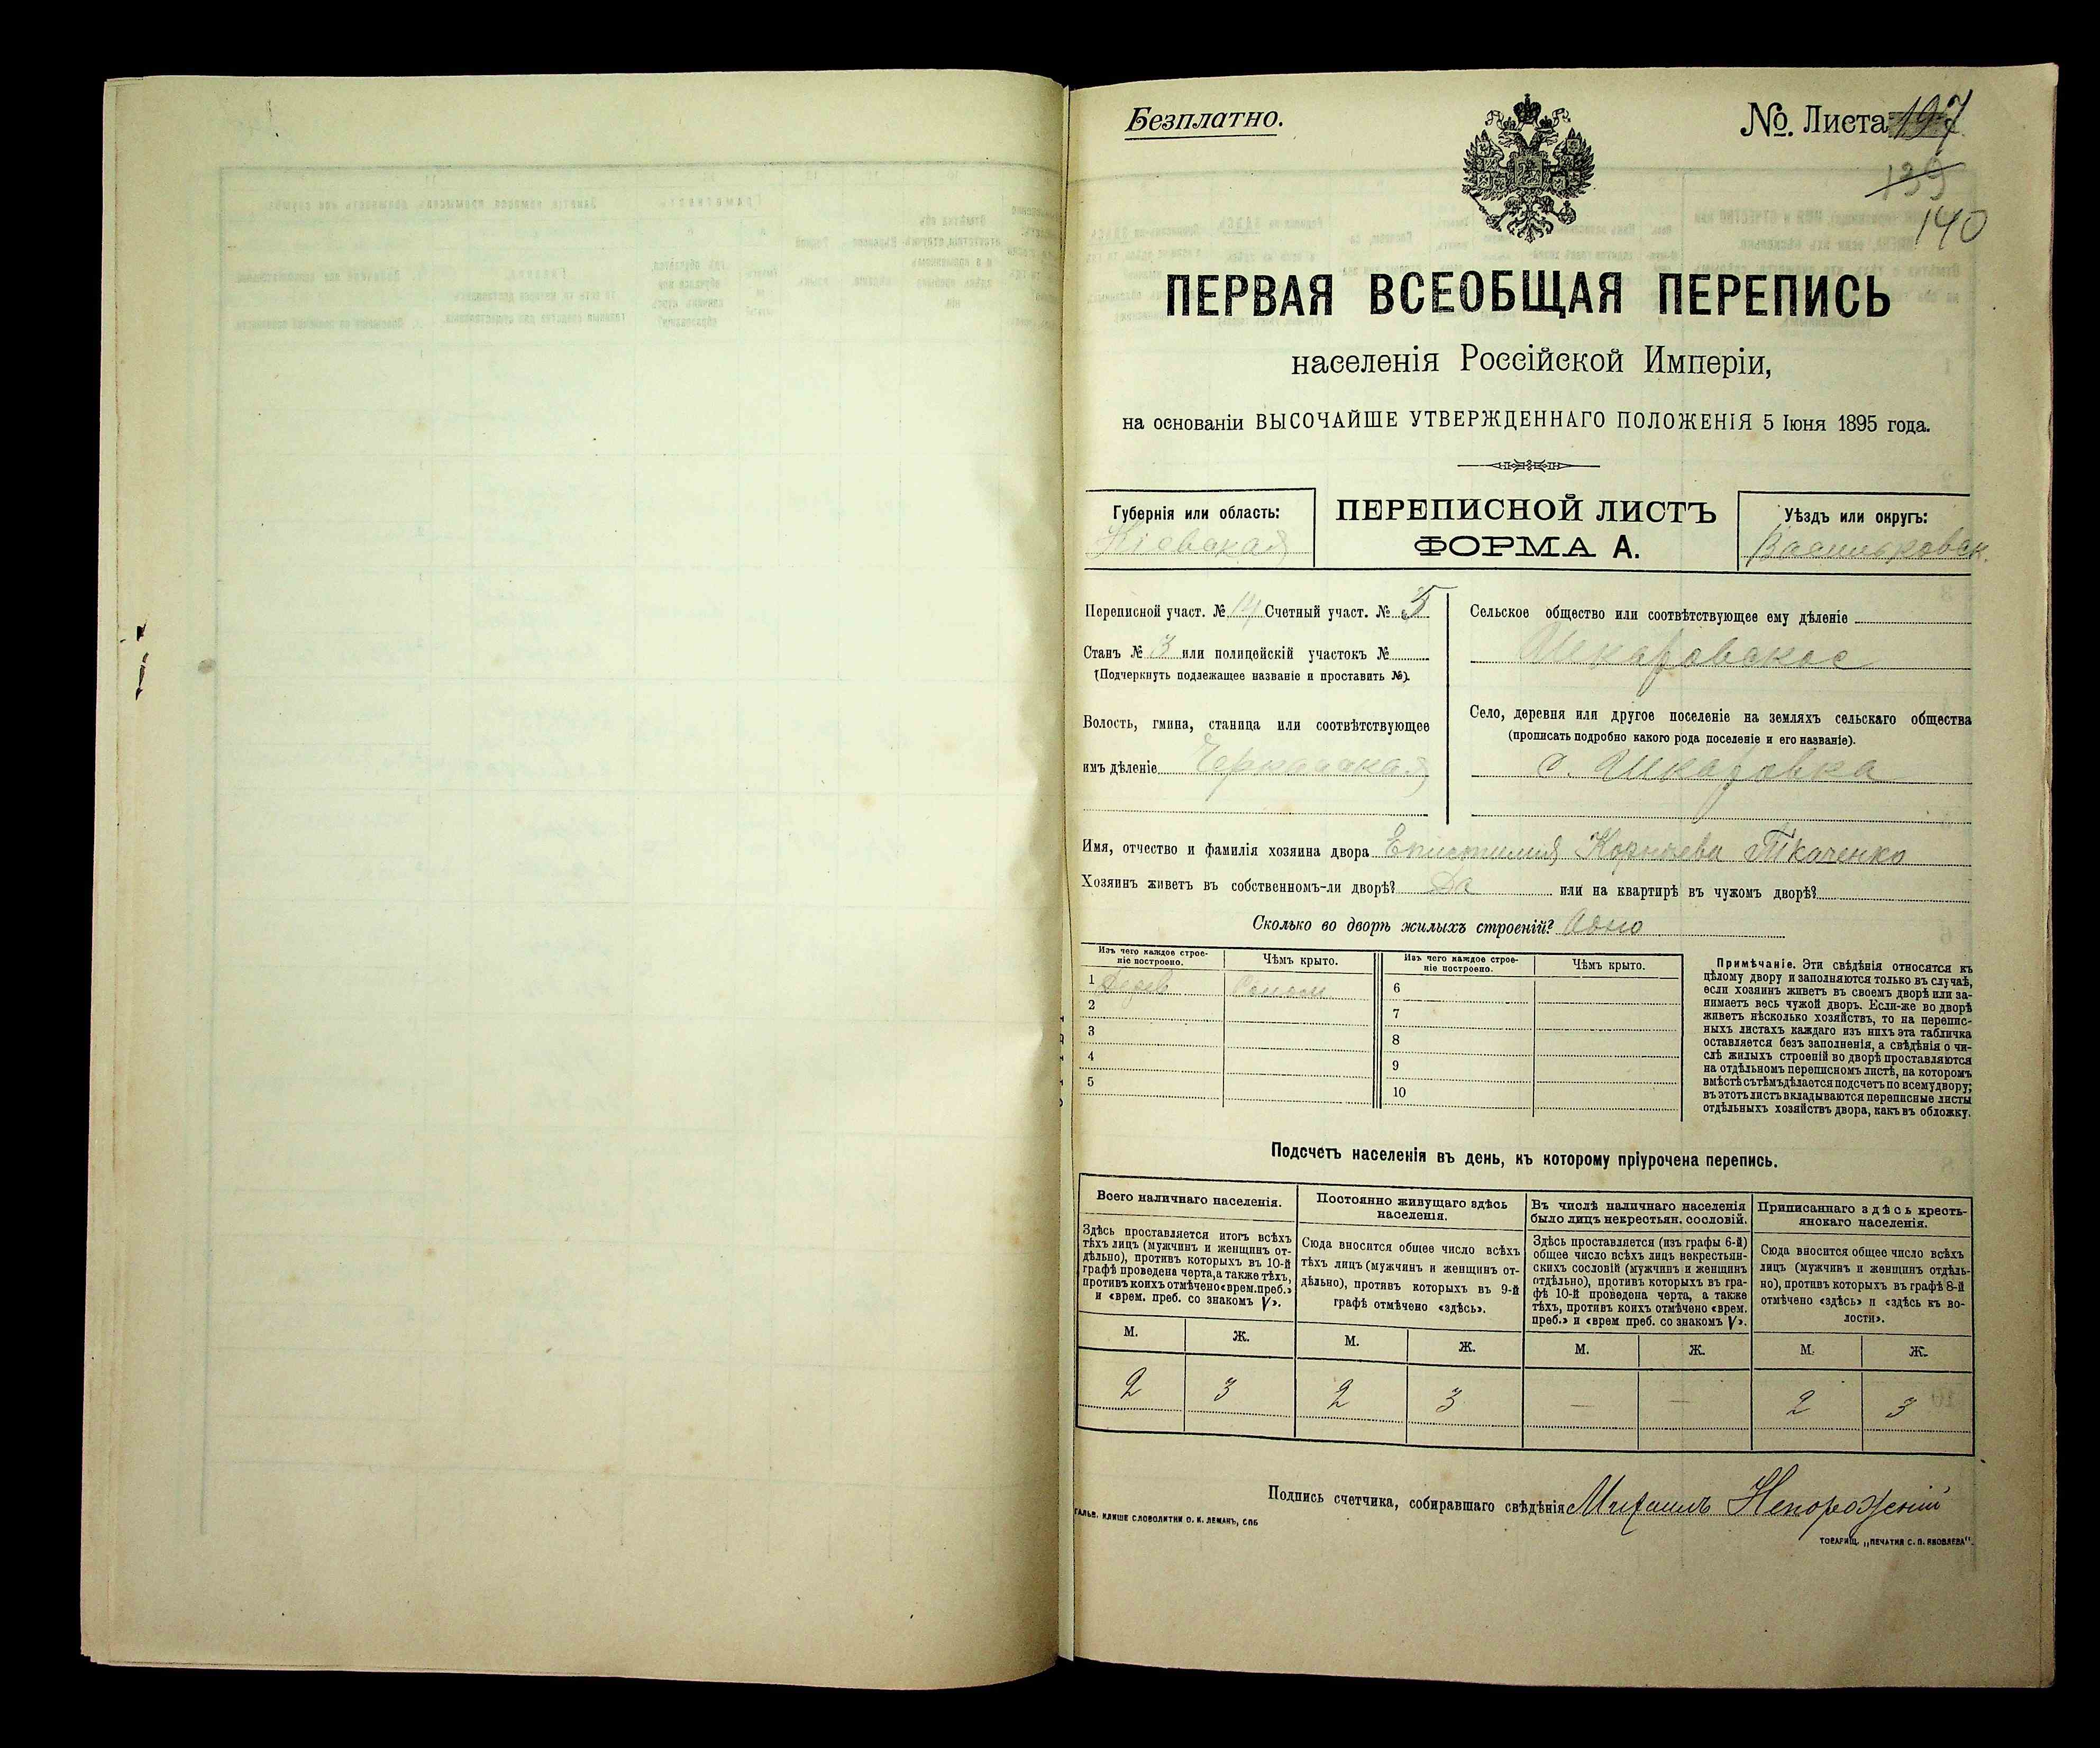 Безплатно.
№. Листа 197
139
140
ПЕРВАЯ ВСЕОБЩАЯ ПЕРЕПИСЬ
населенія Россійской Имперіи,
на основаніи ВЫСОЧАЙШЕ УТВЕРЖДЕННАГО ПОЛОЖЕНІЯ 5 Іюня 1895 года.
Губернія или область:
Кіевская
ПЕРЕПИСНОЙ ЛИСТЪ
ФОРМА А.
Уѣздъ или округъ:
Васильковск.
Переписной участ. № 14 Счетный участ. № 5
Станъ № 3 или полицейскій участокъ №
(Подчеркнуть подлежащее названіе и проставить №).
Волость, гмина, станица или соотвѣтствующее
имъ дѣленіе Черкасская
Сельское общество или соотвѣтствующее ему дѣленіе
Шкаровское
Село, деревня или другое поселеніе на земляхъ сельскаго общества
(прописать подробно какого рода поселеніе и его названіе).
с. Шкаровка
Имя, отчество и фамилія хозяина двора Епистимия Корнѣева Ткаченко
Хозяинъ живетъ въ собственномъ-ли дворѣ? Да или на квартирѣ въ чужомъ дворѣ?
Сколько во дворѣ жилыхъ строеній? Одно
Изъ чего каждое строе-
ніе построено.
Чѣмъ крыто.
Изъ чего каждое строе-
ніе построено.
Чѣмъ крыто.
1 Дерев Солом
2
3
4
5
6
7
8
9
10
Примѣчаніе. Эти свѣдѣнія относятся къ
цѣлому двору и заполняются только въ случаѣ,
если хозяинъ живетъ въ своемъ дворѣ или за-
нимаетъ весь чужой дворъ. Если-же во дворѣ
живетъ нѣсколько хозяйствъ, то на перепис-
ныхъ листахъ каждаго изъ нихъ эта табличка
оставляется безъ заполненія, а свѣдѣнія о чи-
слѣ жилыхъ строеній во дворѣ проставляются
на отдѣльномъ переписномъ листѣ, на которомъ
вмѣстѣ съ тѣмъ дѣлается подсчетъ по всему двору;
въ этотъ листъ вкладываются переписные листы
отдѣльныхъ хозяйствъ двора, какъ въ обложку.
Подсчетъ населенія въ день, къ которому пріурочена перепись.
Всего наличнаго населенія.
Здѣсь проставляется итогъ всѣхъ
тѣхъ лицъ (мужчинъ и женщинъ от-
дѣльно), противъ которыхъ въ 10-й
графѣ проведена черта, а также тѣхъ,
противъ коихъ отмѣчено «врем. преб.»
и «врем. преб. со знакомъ V».
Постоянно живущаго здѣсь
населенія.
Сюда вносится общее число всѣхъ
тѣхъ лицъ (мужчинъ и женщинъ от-
дѣльно), противъ которыхъ въ 9-й
графѣ отмѣчено «здѣсь».
Въ числѣ наличнаго населенія
было лицъ некрестьян. сословій.
Здѣсь проставляется (изъ графы 6-й)
общее число всѣхъ лицъ некрестьян-
скихъ сословій (мужчинъ и женщинъ
отдѣльно), противъ которыхъ въ гра-
фѣ 10-й проведена черта, а также
тѣхъ, противъ коихъ отмѣчено «врем.
преб.» и «врем преб. со знакомъ V».
Приписаннаго здѣсь кресть-
янскаго населенія.
Сюда вносится общее число всѣхъ
лицъ (мужчинъ и женщинъ отдѣль-
но), противъ которыхъ въ графѣ 8-й
отмѣчено «здѣсь» и «здѣсь къ во-
лости».
М. Ж. М. Ж. М. Ж. М. Ж.
2 3 2 3 — — 2 3
Подпись счетчика, собиравшаго свѣдѣнія Михаилъ Непорожній
ГАЛЬВ. КЛИШЕ СЛОВОЛИТНИ О. И. ЛЕМАНЪ, СПБ
ТОВАРИЩ. „ПЕЧАТНЯ С. П. ЯКОВЛЕВА".